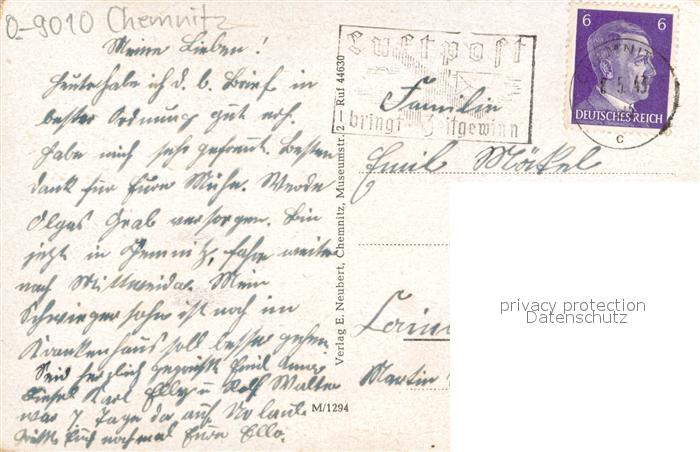 O-9010 Chemnitz
Meine Lieben!
Heute habe ich d. b. Brief in
bester Ordnung gut erh.
Habe mich sehr gefreut. Besten
Dank für Eure Mühe. Werde
Olgas Grab versorgen. Bin
jetzt in Chemnitz, fahre weiter
nach Mittweida. Mein
Schwiegersohn ist noch im
Krankenhaus soll besser gehen.
Seid herzlich gegrüßt Emil
Liesel Karl Elly u Rolf Walter
war 7 Tage da auf Urlaub.
Euch nochmal Eure Ella.
Verlag E. Neubert, Chemnitz, Museumstr. 2 — Ruf 44630
M/1294
Luftpost
bringt Zeitgewinn
6 6
DEUTSCHES REICH
5.43
c
Familie
Emil Möckel
Martin
privacy protection
Datenschutz